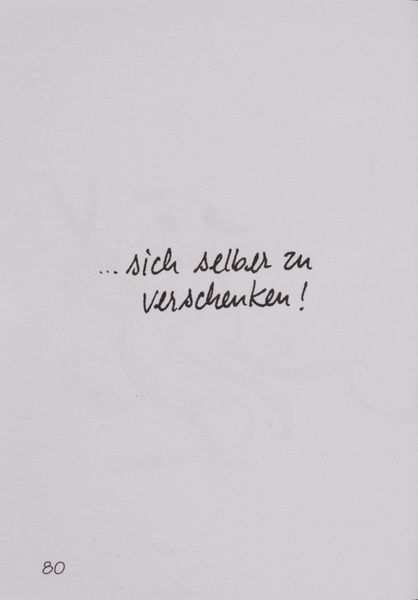 ... sich selber zu
verschenken!
80